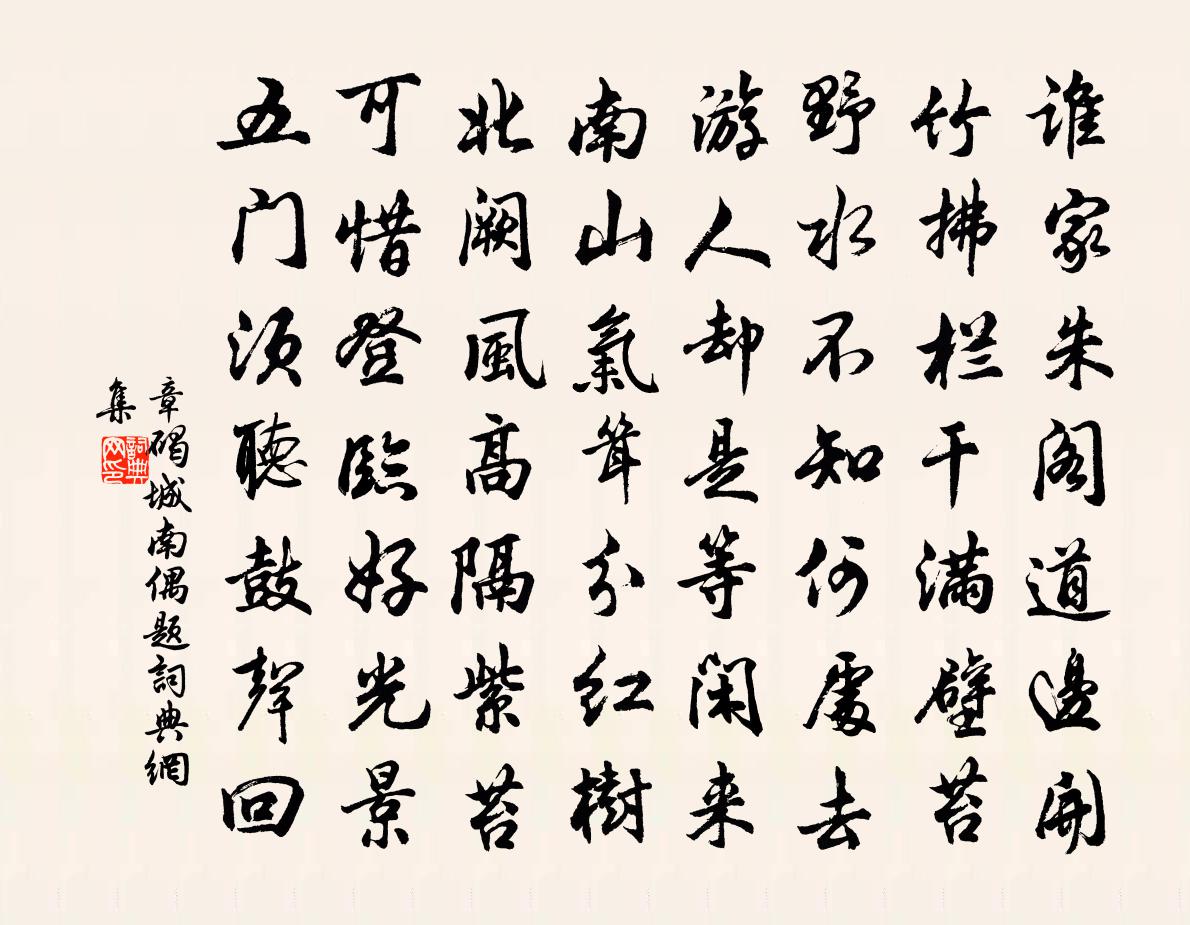 谁家朱阁道邊開
竹拂栏干满壁苔
野水不知何處去
游人却是等闲来
南山氣耸分红樹
北阙風高隔紫苔
可惜登臨好光景
五门须聽鼓聲回
章碣城南偶题詞典網
集
詞典
网印